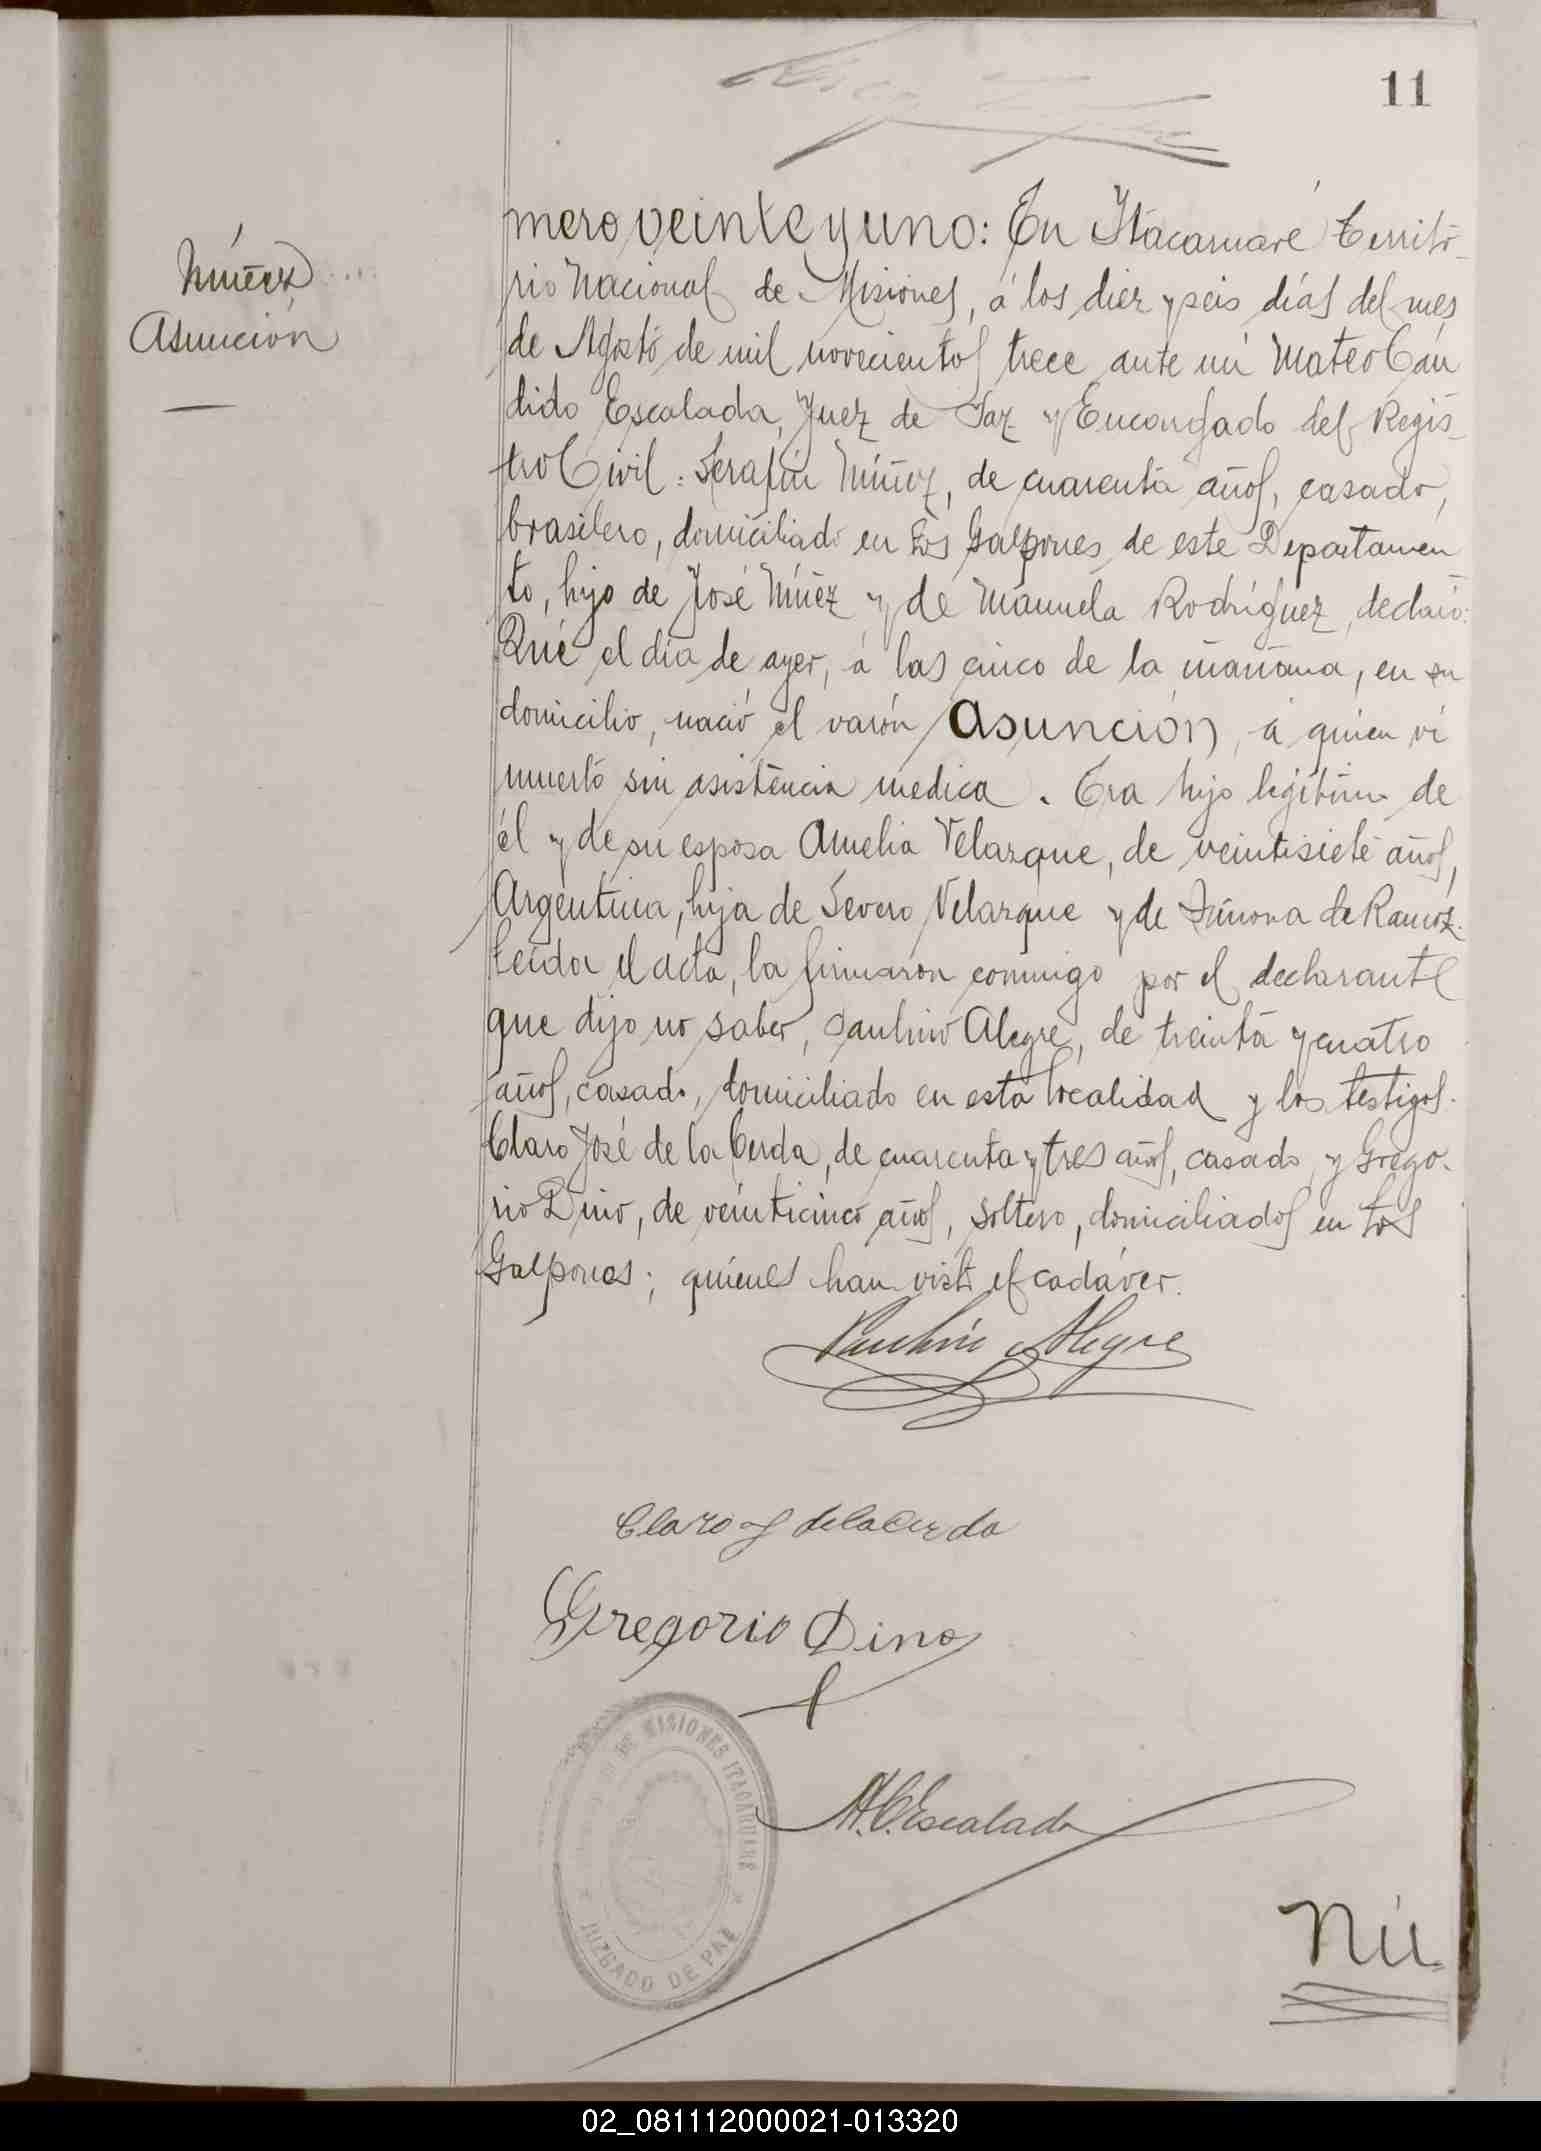 11
Núñez
Asunción
mero veinte y uno: En Itacaruaré Territo-
rio Nacional de Misiones, á los diez y seis días del mes
de Agosto de mil novecientos trece ante mi Mateo Cán
dido Escalada, Juez de Paz y Encargado del Regis-
tro Civil: Serafin Núñez, de cuarenta años, casado,
brasilero, domiciliado en Los Galpones, de este Departamen
to, hijo de José Núñez y de Manuela Rodríguez, declaró:
Que el día de ayer, á las cinco de la mañana, en su
domicilio, nació el varón Asunción, á quien vi
muerto sin asistencia medica. Era hijo legítimo de
él y de su esposa Amelia Velazque, de veintisiete años,
Argentina, hija de Severo Velazque y de de Ramoz.
Leída el acta, la firmaron conmigo por el declarante
que dijo no saber, Paulino Alegre, de treinta y cuatro
años, casado, domiciliado en esta localidad y los testigos
Claro José de la Cerda, de cuarenta y tres años, casado, y Grego-
rio Dino, de veinticinco años, soltero, domiciliados en Los
Galpones; quienes han visto el cadáver.
Paulino Alegre
Claro J de la Cerda
Gregorio Dino
M. C. Escalada
DE MISIONES ITACARUARE
JUZGADO DE PAZ
Nú
02_081112000021-013320